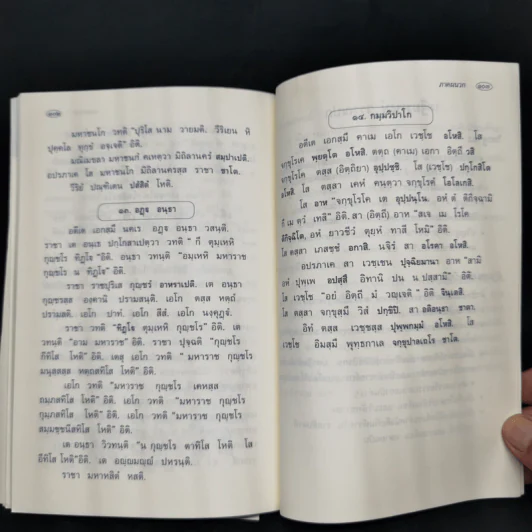 มหาชนโก วทติ "ปุริโส นาม วายมติ. วีริเยน หิ
ปุคฺคโล ทุกฺขํ อจฺเจติ" อิติ.
มณิเมขลา มหาชนกํ คเหตฺวา มิถิลานครํ สมฺปาเปติ.
อปรภาเค โส มหาชนโก มิถิลานครสฺส ราชา ชาโต.
วีริยํ ปณฺฑิเตน ปสํสิตํ โหติ.
๑๓. อฏฺฐ อนฺธา
อตีเต เอกสฺมึ นคเร อฏฺฐ อนฺธา วสนฺติ.
ราชา เต อนฺเธ ปกฺโกสาเปตฺวา วทติ "กึ ตุมฺเหหิ
กุญฺชโร ทิฏฺโฐ" อิติ. อนฺธา วทนฺติ "อมฺเหหิ มหาราช
กุญฺชโร น ทิฏฺโฐ" อิติ.
ราชา ราชปุริเส กุญฺชรํ อาหราเปติ. เต อนฺธา
กุญฺชรสฺส องฺคานิ ปรามสนฺติ. เอโก ตสฺส หตฺถํ
ปรามสติ. เอโก ปาทํ. เอโก สีสํ. เอโก นงฺคุฏฺฐํ.
ราชา วทติ "ทิฏฺโฐ ตุมฺเหหิ กุญฺชโร" อิติ. เต
วทนฺติ "อาม มหาราช" อิติ. ราชา ปุจฺฉติ "กุญฺชโร
กีทิโส โหติ" อิติ. เตสุ เอโก วทติ "มหาราช กุญฺชโร
มนุสฺสสฺส หตฺถสทิโส โหติ" อิติ.
เอโก วทติ "มหาราช กุญฺชโร เคหสฺส
ถมฺภสทิโส โหติ" อิติ. เอโก วทติ "มหาราช กุญฺชโร
กุมฺภสทิโส โหติ" อิติ. เอโก วทติ "มหาราช กุญฺชโร
สมฺมชฺชนีสทิโส โหติ" อิติ.
เต อนฺธา วิวทนฺติ "น กุญฺชโร ตาทิโส โหติ โส
อีทิโส โหติ" อิติ. เต อญฺญมญฺญํ ปหรนฺติ.
ราชา มหาหสิตํ หสติ.
ภาคผนวก
๑๔. กมฺมวิปาโก
อตีเต เอกสฺมึ คาเม เอโก เวชฺโช อโหสิ. โส
จกฺขุโรเค พฺยตฺโต อโหสิ. ตตฺถ (คาเม) เอกา อิตฺถี วสิ
จกฺขุโรโค ตสฺส (อิตฺถิยา) อุปฺปชฺชิ. โส (เวชฺโช) ปกฺโกสิโต
อโหสิ. โส ตสฺสา เคหํ คนฺตฺวา จกฺขุโรคํ โอโลเกสิ.
โส อาห "จกฺขุโรโค เต อุปฺปนฺโน. อหํ ตํ ติกิจฺฉามิ
กึ เม ตฺวํ เทสิ" อิติ. สา (อิตฺถี) อาห "สเจ เม โรโค
ติกิจฺฉิโต, อหํ ยาวชีวํ ตุยฺหํ ทาสี โหมิ" อิติ.
โส ตสฺสา เภสชฺชํ อกาสิ. นจิรํ สา อโรคา อโหสิ.
อปรภาเค สา เวชฺเชน ปุจฺฉิยมานา อาห "สามิ
อหํ ปุพฺเพ อปสฺสึ อิทานิ ปน น ปสฺสามิ" อิติ.
โส เวชฺโช "อยํ อิตฺถี มํ วญฺเจติ" อิติ จินฺเตสิ.
โส ตสฺสา จกฺขุสฺมึ วิสํ ปกฺขิปิ. สา อติอนฺธา ชาตา.
อิทํ ตสฺส เวชฺชสฺส ปุพฺพกมฺมํ อโหสิ. โส
เวชฺโช อิมสฺมึ พุทฺธกาเล จกฺขุปาลเถโร ชาโต.